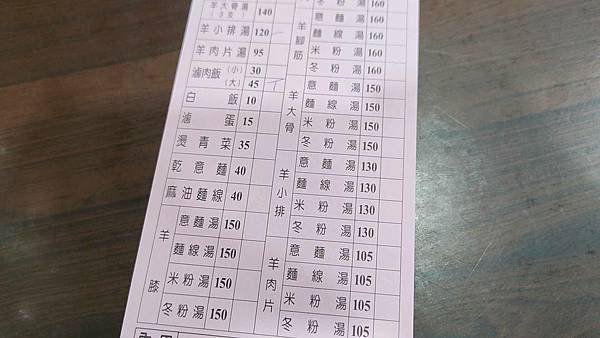 羊大骨湯 140
(3支)
羊小排湯 120
羊肉片湯 95
滷肉飯 (小) 30
(大) 45
白飯 10
滷蛋 15
燙青菜 35
乾意麵 40
麻油麵線 40
羊膝
意麵湯 150
麵線湯 150
米粉湯 150
冬粉湯 150
冬粉湯 160
羊腳筋
意麵湯 160
麵線湯 160
米粉湯 160
冬粉湯 160
羊大骨
意麵湯 150
麵線湯 150
米粉湯 150
冬粉湯 150
羊小排
意麵湯 130
麵線湯 130
米粉湯 130
冬粉湯 130
羊肉片
意麵湯 105
麵線湯 105
米粉湯 105
冬粉湯 105